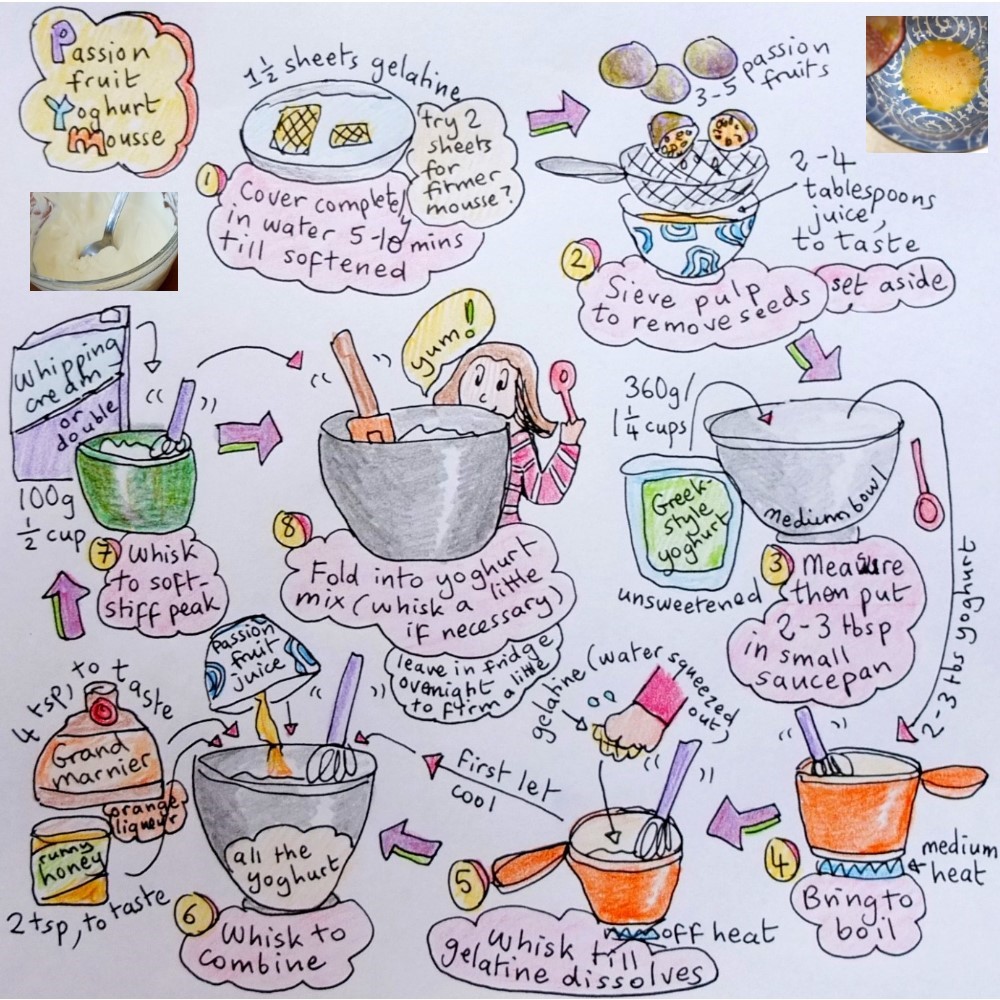 Passion
fruit
Yoghurt
Mousse
1½ sheets gelatine
try 2
sheets
for
firmer
mousse?
1
Cover completely
in water 5-10 mins
till softened
3-5 passion
fruits
2-4
tablespoons
juice,
to taste
2
Sieve pulp
to remove seeds
set aside
360g/
1¼ cups
Greek-
style
yoghurt
unsweetened
medium bowl
3
Measure
then put
2-3 tbsp
in small
saucepan
2-3 tbs yoghurt
4
medium
heat
Bring to
boil
gelatine (water squeezed
out)
5
off heat
Whisk till
gelatine dissolves
First let
cool
Passion
fruit
juice
4 tsp, to taste
Grand
marnier
orange
liqueur
runny
honey
2 tsp, to taste
all the
yoghurt
6
Whisk to
combine
Whipping
cream
or
double
100g
½ cup
7
Whisk
to soft-
stiff peak
yum!
8
Fold into yoghurt
mix (whisk a little
if necessary)
leave in fridge
overnight
to firm a little